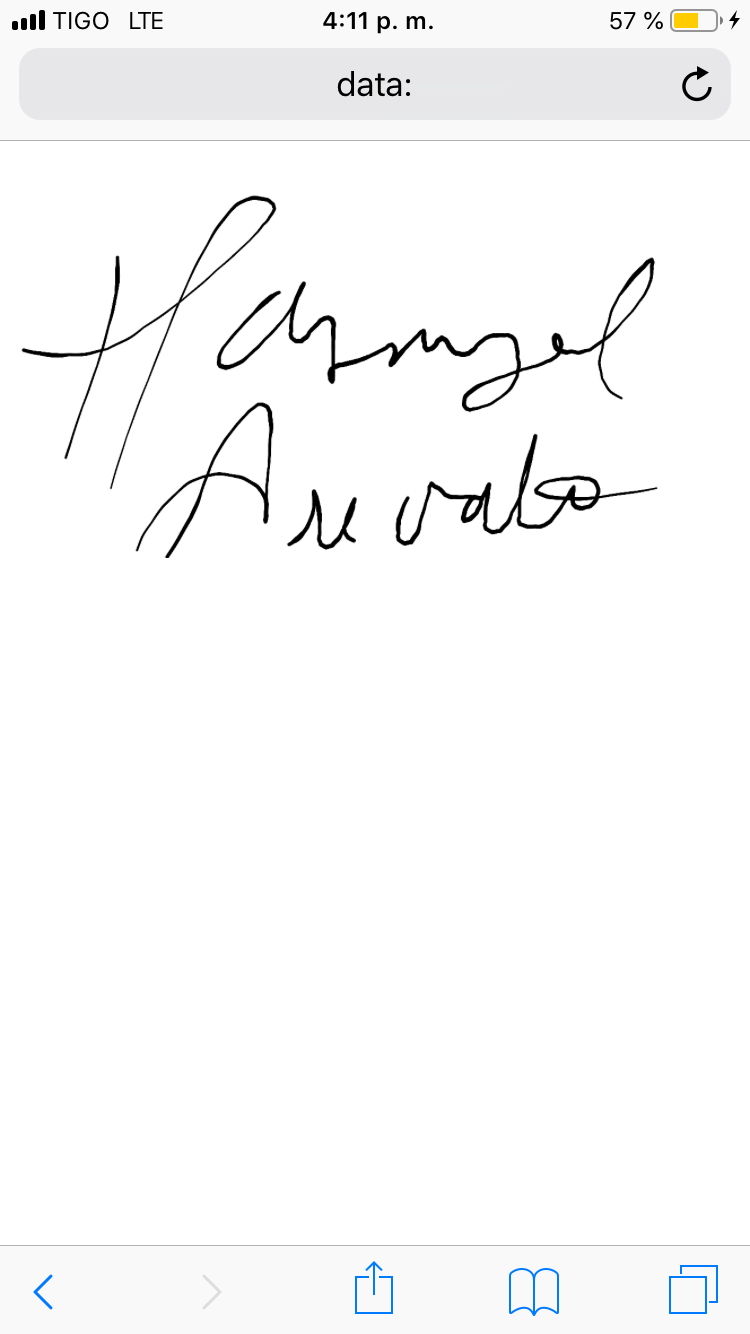 TIGO LTE 4:11 p. m. 57 %
data:
Arevalo